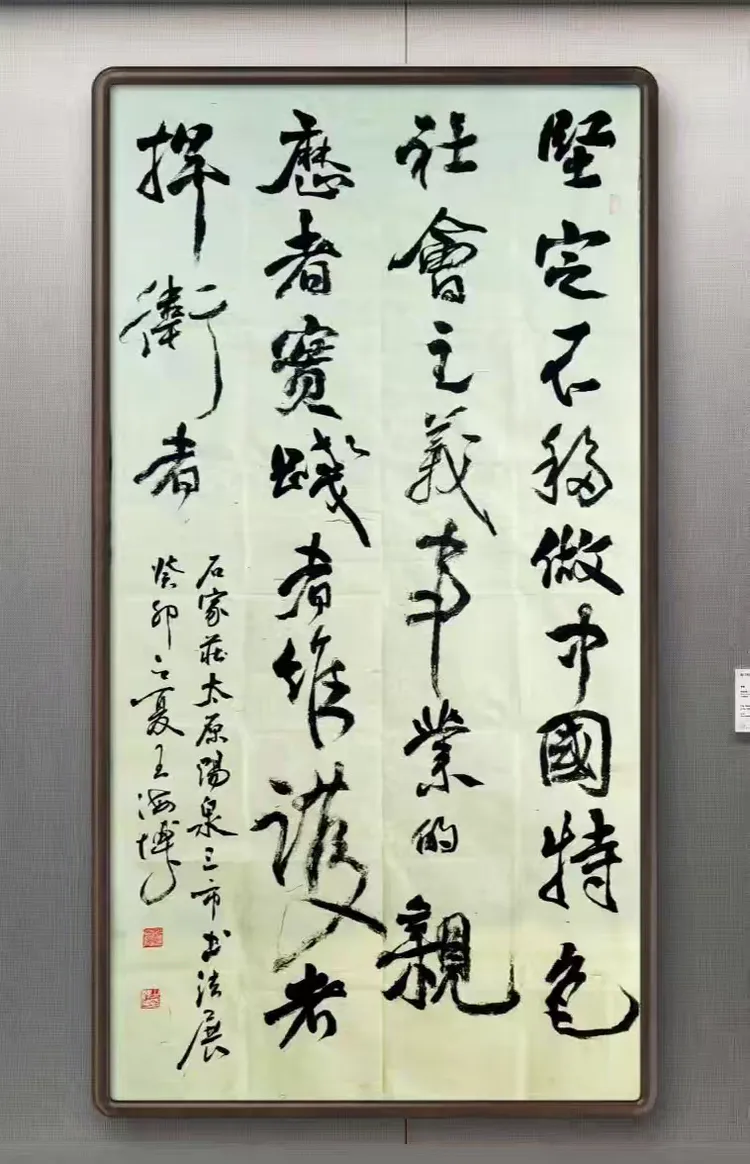 堅定不移做中國特色
社會主義事業的親
歷者實踐者維護者
捍衛者
石家莊太原陽泉三市書法展
癸卯之夏王海博